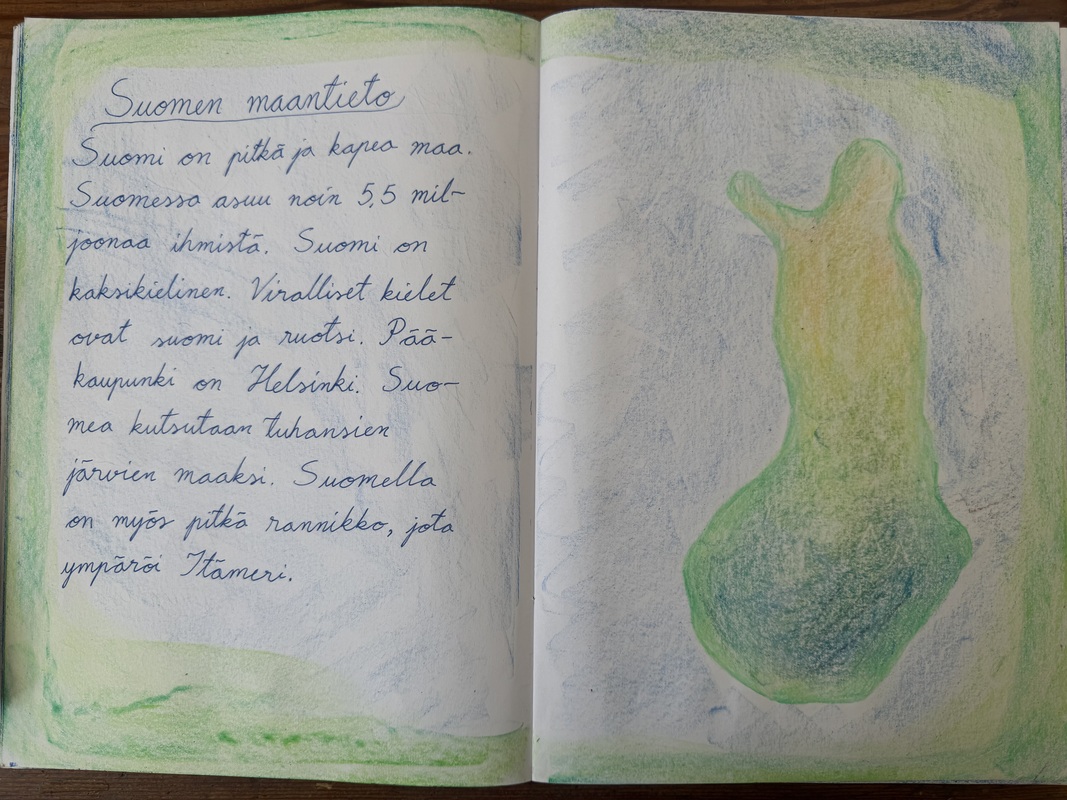 Suomen maantieto
Suomi on pitkä ja kapea maa.
Suomessa asuu noin 5,5 mil-
joonaa ihmistä. Suomi on
kaksikielinen. Viralliset kielet
ovat suomi ja ruotsi. Pää-
kaupunki on Helsinki. Suo-
mea kutsutaan tuhansien
järvien maaksi. Suomella
on myös pitkä rannikko, jota
ympäröi Itämeri.